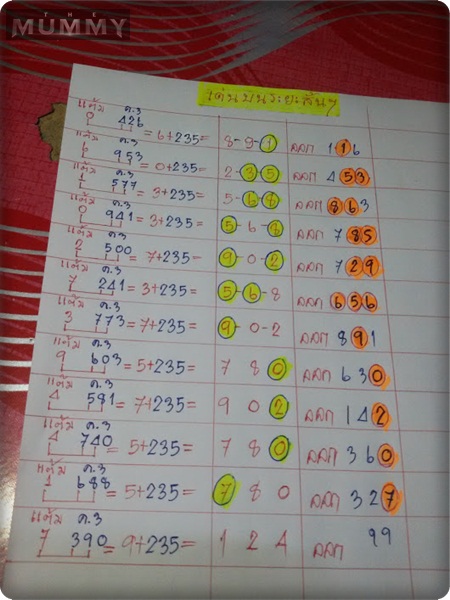 THE
MUMMY
เด่นบนระยะสั้นๆ
แต้ม ค.3
0 426 = 6+235= 8-9-1 ออก 116
แต้ม ค.3
6 953 = 0+235= 2-3-5 ออก 453
แต้ม ค.3
1 577 = 3+235= 5-6-8 ออก 863
แต้ม ค.3
0 941 = 3+235= 5-6-8 ออก 785
แต้ม ค.3
2 500 = 7+235= 9-0-2 ออก 729
แต้ม ค.3
7 241 = 3+235= 5-6-8 ออก 656
แต้ม ค.3
3 773 = 7+235= 9-0-2 ออก 891
แต้ม ค.3
9 603 = 5+235= 7 8 0 ออก 630
แต้ม ค.3
4 581 = 7+235= 9 0 2 ออก 142
แต้ม ค.3
4 740 = 5+235= 7 8 0 ออก 360
แต้ม ค.3
1 688 = 5+235= 7 8 0 ออก 327
แต้ม ค.3
7 390 = 9+235= 1 2 4 ออก ๆๆ